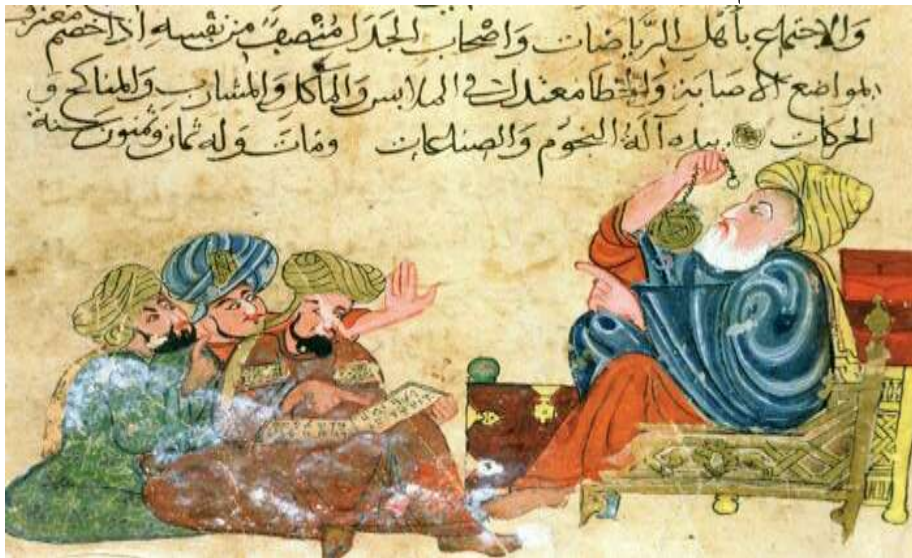 والاجتماع بأهل الرياضات واصحاب الجدل منصف من نفسه اذا خصم معترف
بمواضع الاصابة والخطا معتدل في الملابس والمآكل والمشارب والمناكح و
الحركات بيده آلة النجوم ومات وله ثمان سنة